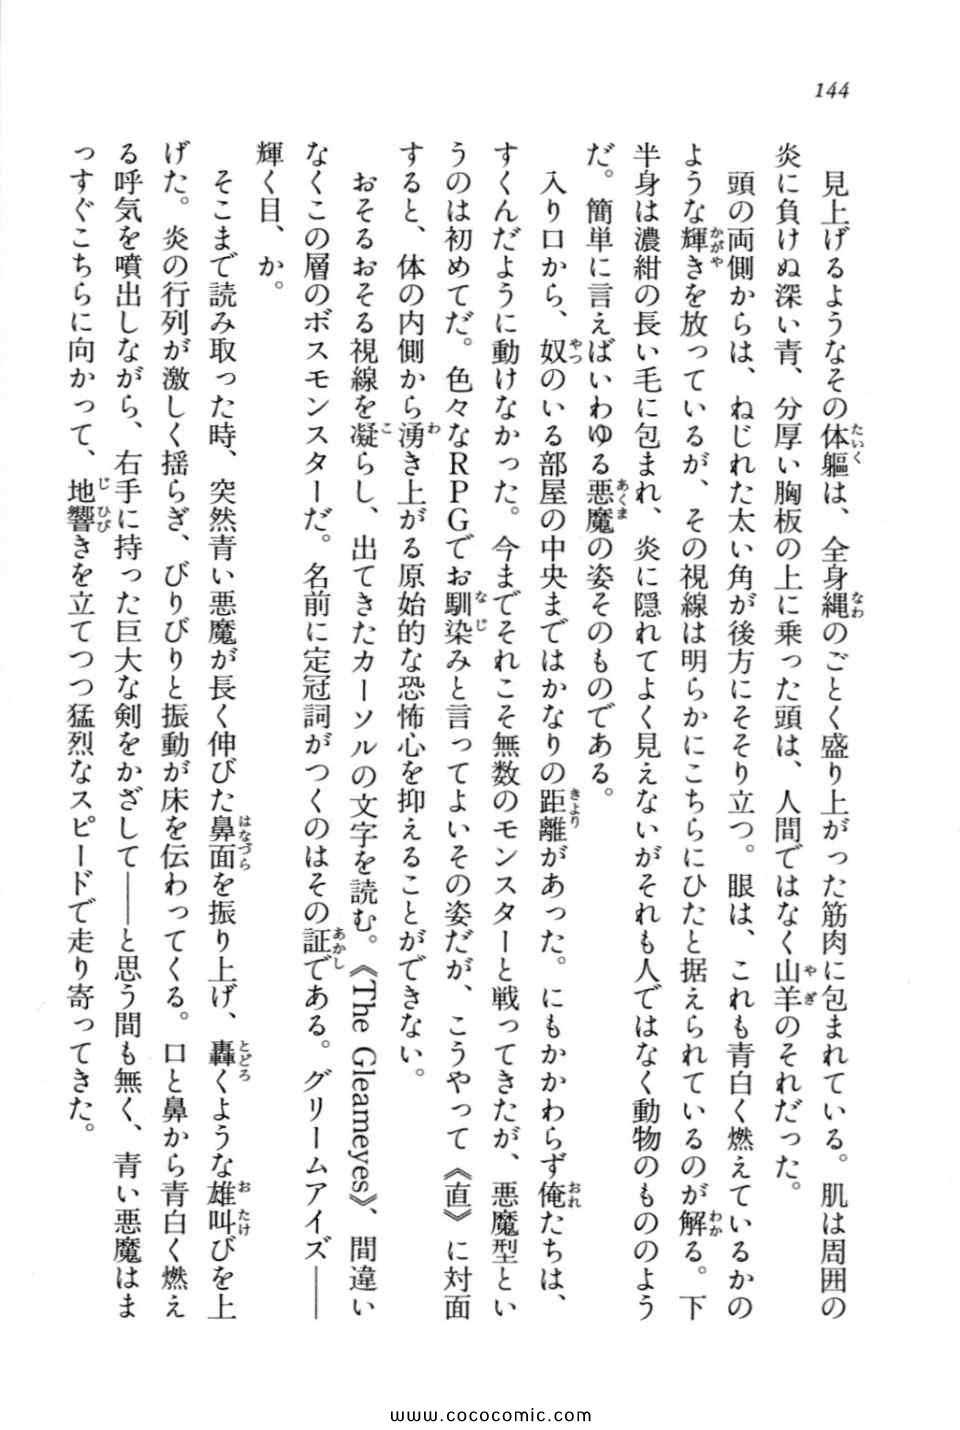 144
見上げるようなその体軀は、全身縄のごとく盛り上がった筋肉に包まれている。肌は周囲の
炎に負けぬ深い青、分厚い胸板の上に乗った頭は、人間ではなく山羊のそれだった。
頭の両側からは、ねじれた太い角が後方にそそり立つ。眼は、これも青白く燃えているかの
ような輝きを放っているが、その視線は明らかにこちらにひたと据えられているのが解る。下
半身は濃紺の長い毛に包まれ、炎に隠れてよく見えないがそれも人ではなく動物のもののよう
だ。簡単に言えばいわゆる悪魔の姿そのものである。
入り口から、奴のいる部屋の中央まではかなりの距離があった。にもかかわらず俺たちは、
すくんだように動けなかった。今までそれこそ無数のモンスターと戦ってきたが、悪魔型とい
うのは初めてだ。色々なRPGでお馴染みと言ってよいその姿だが、こうやって《直》に対面
すると、体の内側から湧き上がる原始的な恐怖心を抑えることができない。
おそるおそる視線を凝らし、出てきたカーソルの文字を読む。《The Gleameyes》、間違い
なくこの層のボスモンスターだ。名前に定冠詞がつくのはその証である。グリームアイズ――
輝く目、か。
そこまで読み取った時、突然青い悪魔が長く伸びた鼻面を振り上げ、轟くような雄叫びを上
げた。炎の行列が激しく揺らぎ、びりびりと振動が床を伝わってくる。口と鼻から青白く燃え
る呼気を噴出しながら、右手に持った巨大な剣をかざして――と思う間も無く、青い悪魔はま
っすぐこちらに向かって、地響きを立てつつ猛烈なスピードで走り寄ってきた。
www.cococomic.com